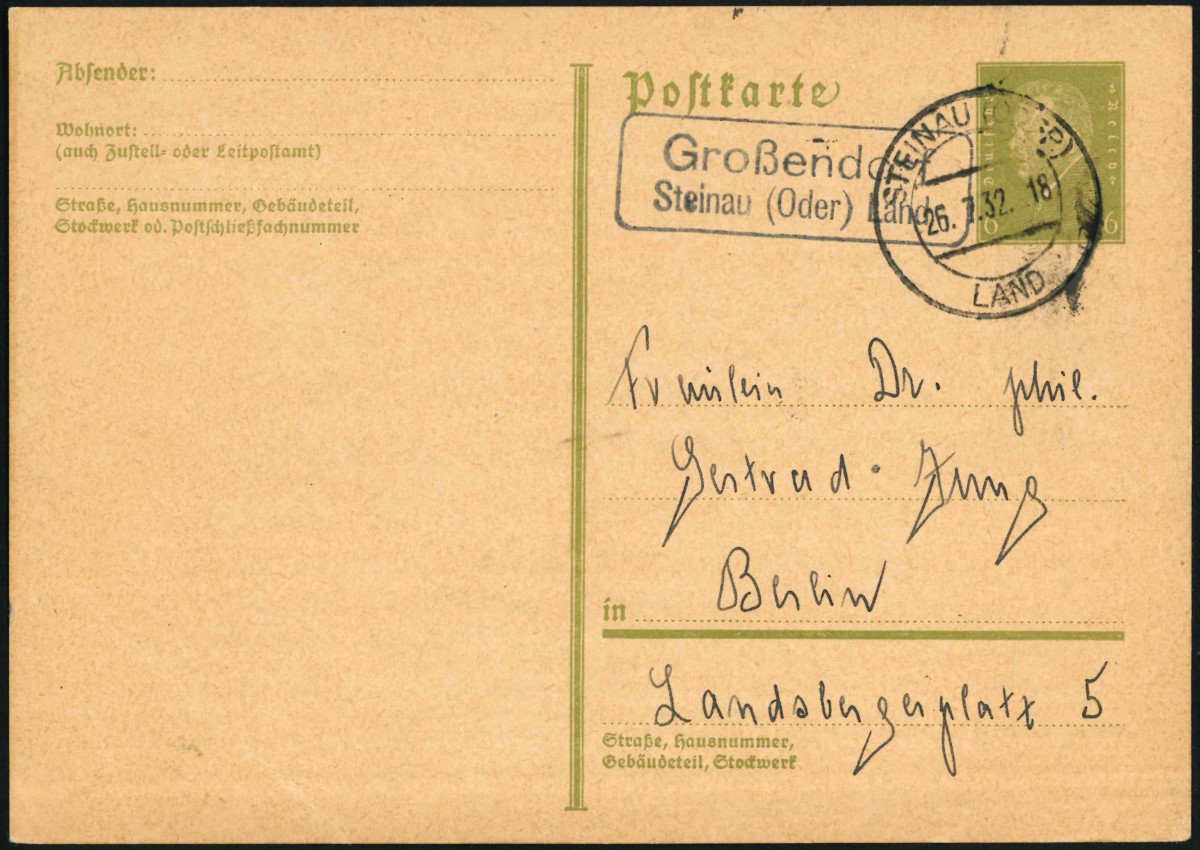 Absender:
Wohnort:
(auch Zustell- oder Leitpostamt)
Straße, Hausnummer, Gebäudeteil,
Stockwerk od. Postschließfachnummer
Postkarte
Großendo
Steinau (Oder) Land
STEINAU (ODER)
26. 7.32. 18
LAND
Deutsches Reich
6 6
Fräulein Dr. phil.
Gertrud Jung
in Berlin
Landsbergerplatz 5
Straße, Hausnummer,
Gebäudeteil, Stockwerk